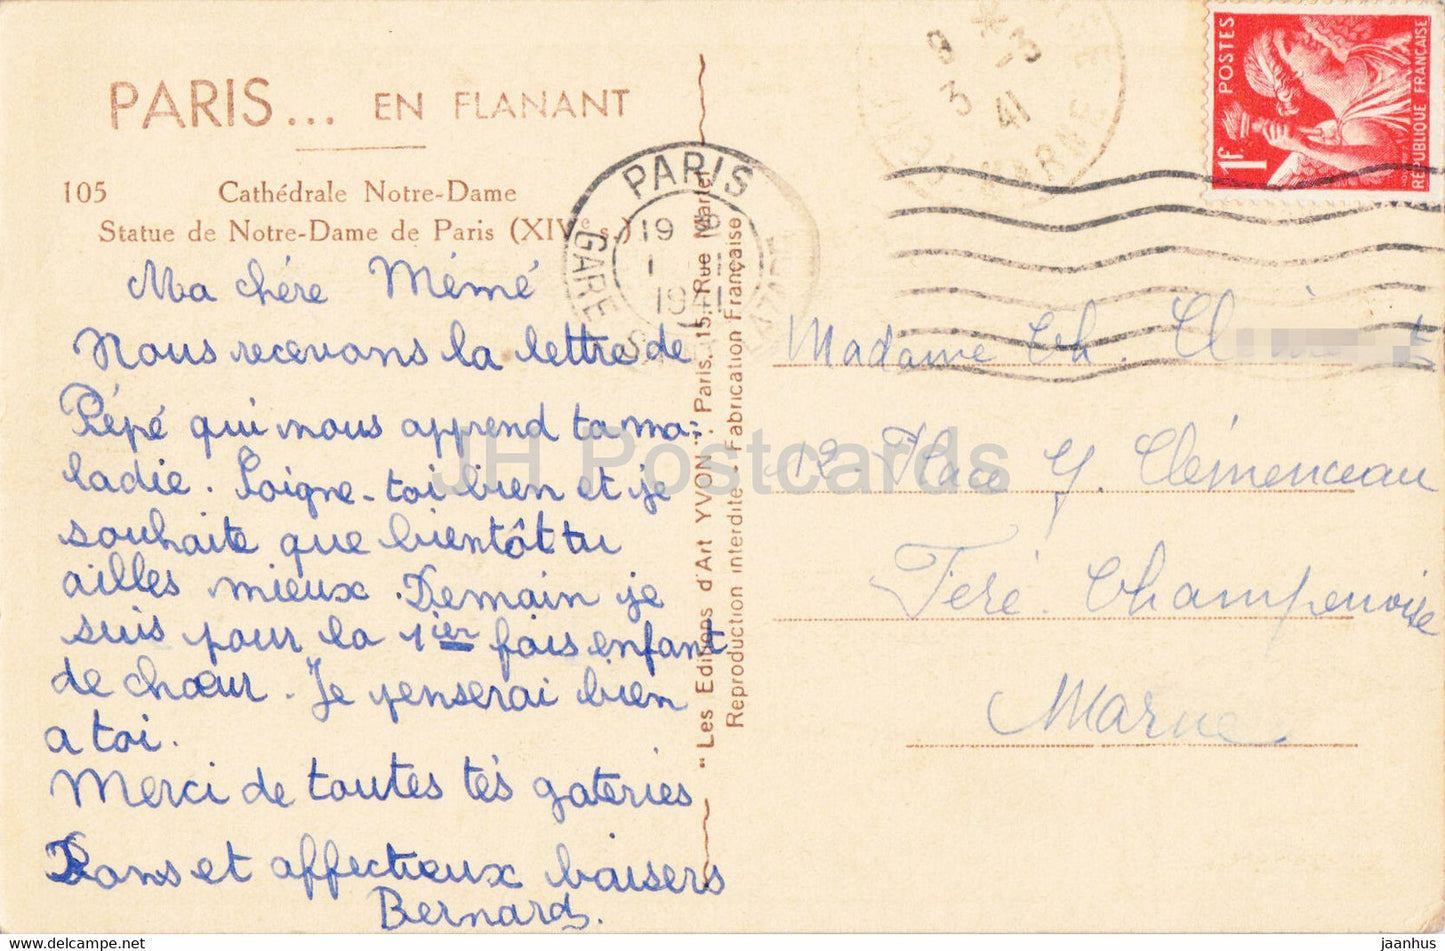 PARIS... EN FLANANT
105 Cathédrale Notre-Dame
Statue de Notre-Dame de Paris (XIVe s.)
Ma chére Mémé
Nous recevons la lettre de
Pépé qui nous apprend ta ma-
ladie. Soigne-toi bien et je
souhaite que bientôt tu
ailles mieux. Demain je
suis pour la 1ier fois enfant
de chœur. Je penserai bien
a toi.
Merci de toutes tes gateries
Bons et affectieux baisers
Bernard.
"Les Editions d'Art YVON". Paris. 15, Rue Martel
Reproduction interdite - Fabrication Française
PARIS
19
1941
GARE
9 * -3
3 41
MARNE
POSTES
1F
REPUBLIQUE FRANÇAISE
Madame Ch. Cl
12 Place G. Clémenceau
Feré. Champenoise
Marne
JH Postcards
www.delcampe.net
jaanhus